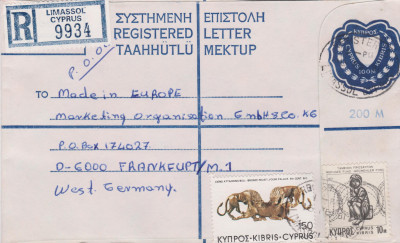 R
LIMASSOL
CYPRUS
9934
ΣΥΣΤΗΜΕΝΗ ΕΠΙΣΤΟΛΗ
REGISTERED LETTER
TAAHHÜTLÜ MEKTUP
ΚΥΠΡΟΣ
CYPRUS KIBRIS
100M
200 M
TO Made in EUROPE
Marketing Organisation GmbH&Co. KG
P.O.Box 174027
D-6000 FRANKFURT/M.1
West Germany
150
ΚΥΠΡΟΣ-KIBRIS-CYPRUS
ΚΥΠΡΟΣ
CYPRUS
KIBRIS
10M